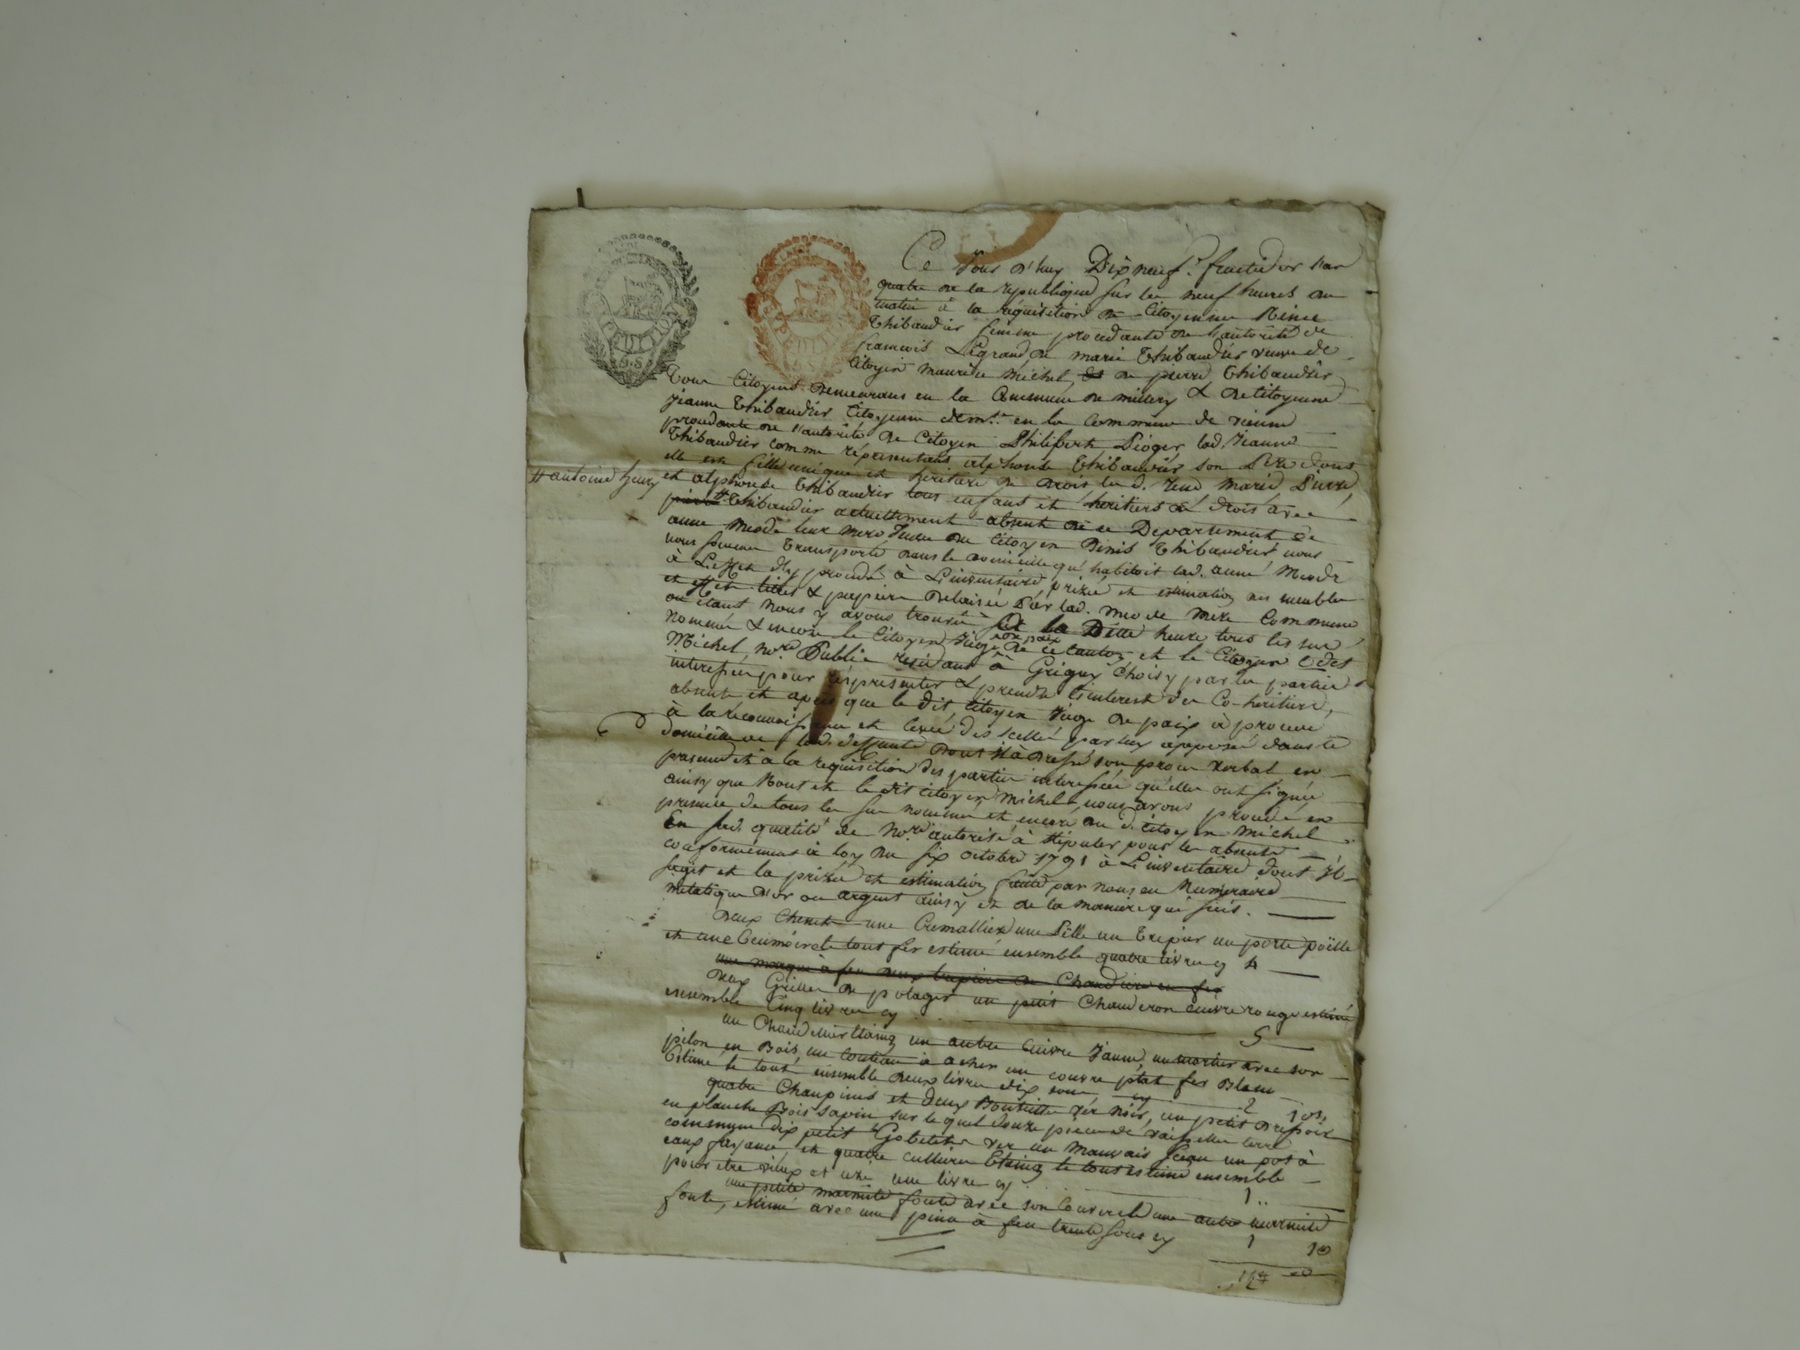 Ce Jour d'huy Dixneuf.e fructidor l'an
quatre de la republique sur les neuf heures du
matin à la réquisition de Citoyenne Rene
Thibaudier femme procedante de l'autorité de
francois Legrand, de marie Thibaudier veuve de
Citoyen maurice Michel, de pierre Thibaudier
Tous Citoyens Demeurans en la Commune de millery & de Citoyenne
Jeanne Thibaudier Citoyenne dem.te en la Commune de
procedante de l'autorité de Citoyen Philibert Léoger lad. Jeanne
Thibaudier comme représentant alphonse Thibaudier son Pere dont
elle est fille unique et heritiere de droit lad. René Marie Pierre
et alphonse Thibaudier tous enfans et heritiers de droit avec
# antoine henry
# Thibaudier actuellement absent de ce Departement de
anne Mède leur mere veuve du Citoyen Denis Thibaudier nous
nous sommes transporté dans le domicille qu'habitoit lad. anne Mède
à L'effet d'y procedé à L'inventaire, prizée et estimation des meubles
et effets titres & papiers Delaissé par lad. Mède mere Commune
ou étant nous y avons trouvé à la Ditte heure tous les sus
nommés & encore le Citoyen Juge de paix de ce Canton et le Citoyen
Michel no.re Public residant à Grigny choisy par les parties
interessées pour représenter & prendre l'interest des Co-heritiers,
absents et après que le dit Citoyen Juge de paix à procédé
à la reconnoissance et levée des scellés par luy apposé dans le
domicile de lad. deffunte dont il à dressé son procès verbal en
presence et à la requisition des parties interessées qu'elles ont signée
ainsy que Nous et le dit citoyen Michel, nous avons procedé en
presence de tous les sus nommés et encore du d. citoyen Michel
En sad. qualité de No.re autorisé à stipuler pour les absents
conformément à loy du six octobre 1791 à L'inventaire dont il
s'agit et la prizée et estimation faitte par nous en Numeraire
métalique d'or ou argent ainsy et de la maniere qui suit.
Deux Chenets une Cremalliere une Pelle un trepier un porte poëlle
et une Ecumoire le tout fer estimé ensemble quatre livres cy 4
Deux Grilles de potager un petit Chauderon cuivre rouge estimé
ensemble Cinq livres cy 5
un Chandellier Etaing un autre Cuivre Jaune, un mortier avec son
pilon en Bois, un couteau à acher un couvre plat fer Blanc
Estimé le tout ensemble Deux livres dix sous cy 2 10s
quatre Chaupines et deux Bouteilles ver noir, un petit
en planche Bois sapin sur lequel douze pieces de vaisselle terre
commune Dix petit Gobelets ver un mauvais seau un pot à
eaux fayance, et quatre culliers Etaing le tout estimé ensemble
pour etre vieux et uzé une livre cy 1
une petite marmite fonte avec son Couvercle une autre marmite
fonte, estimé avec une pince à feu trente sous cy 1 10